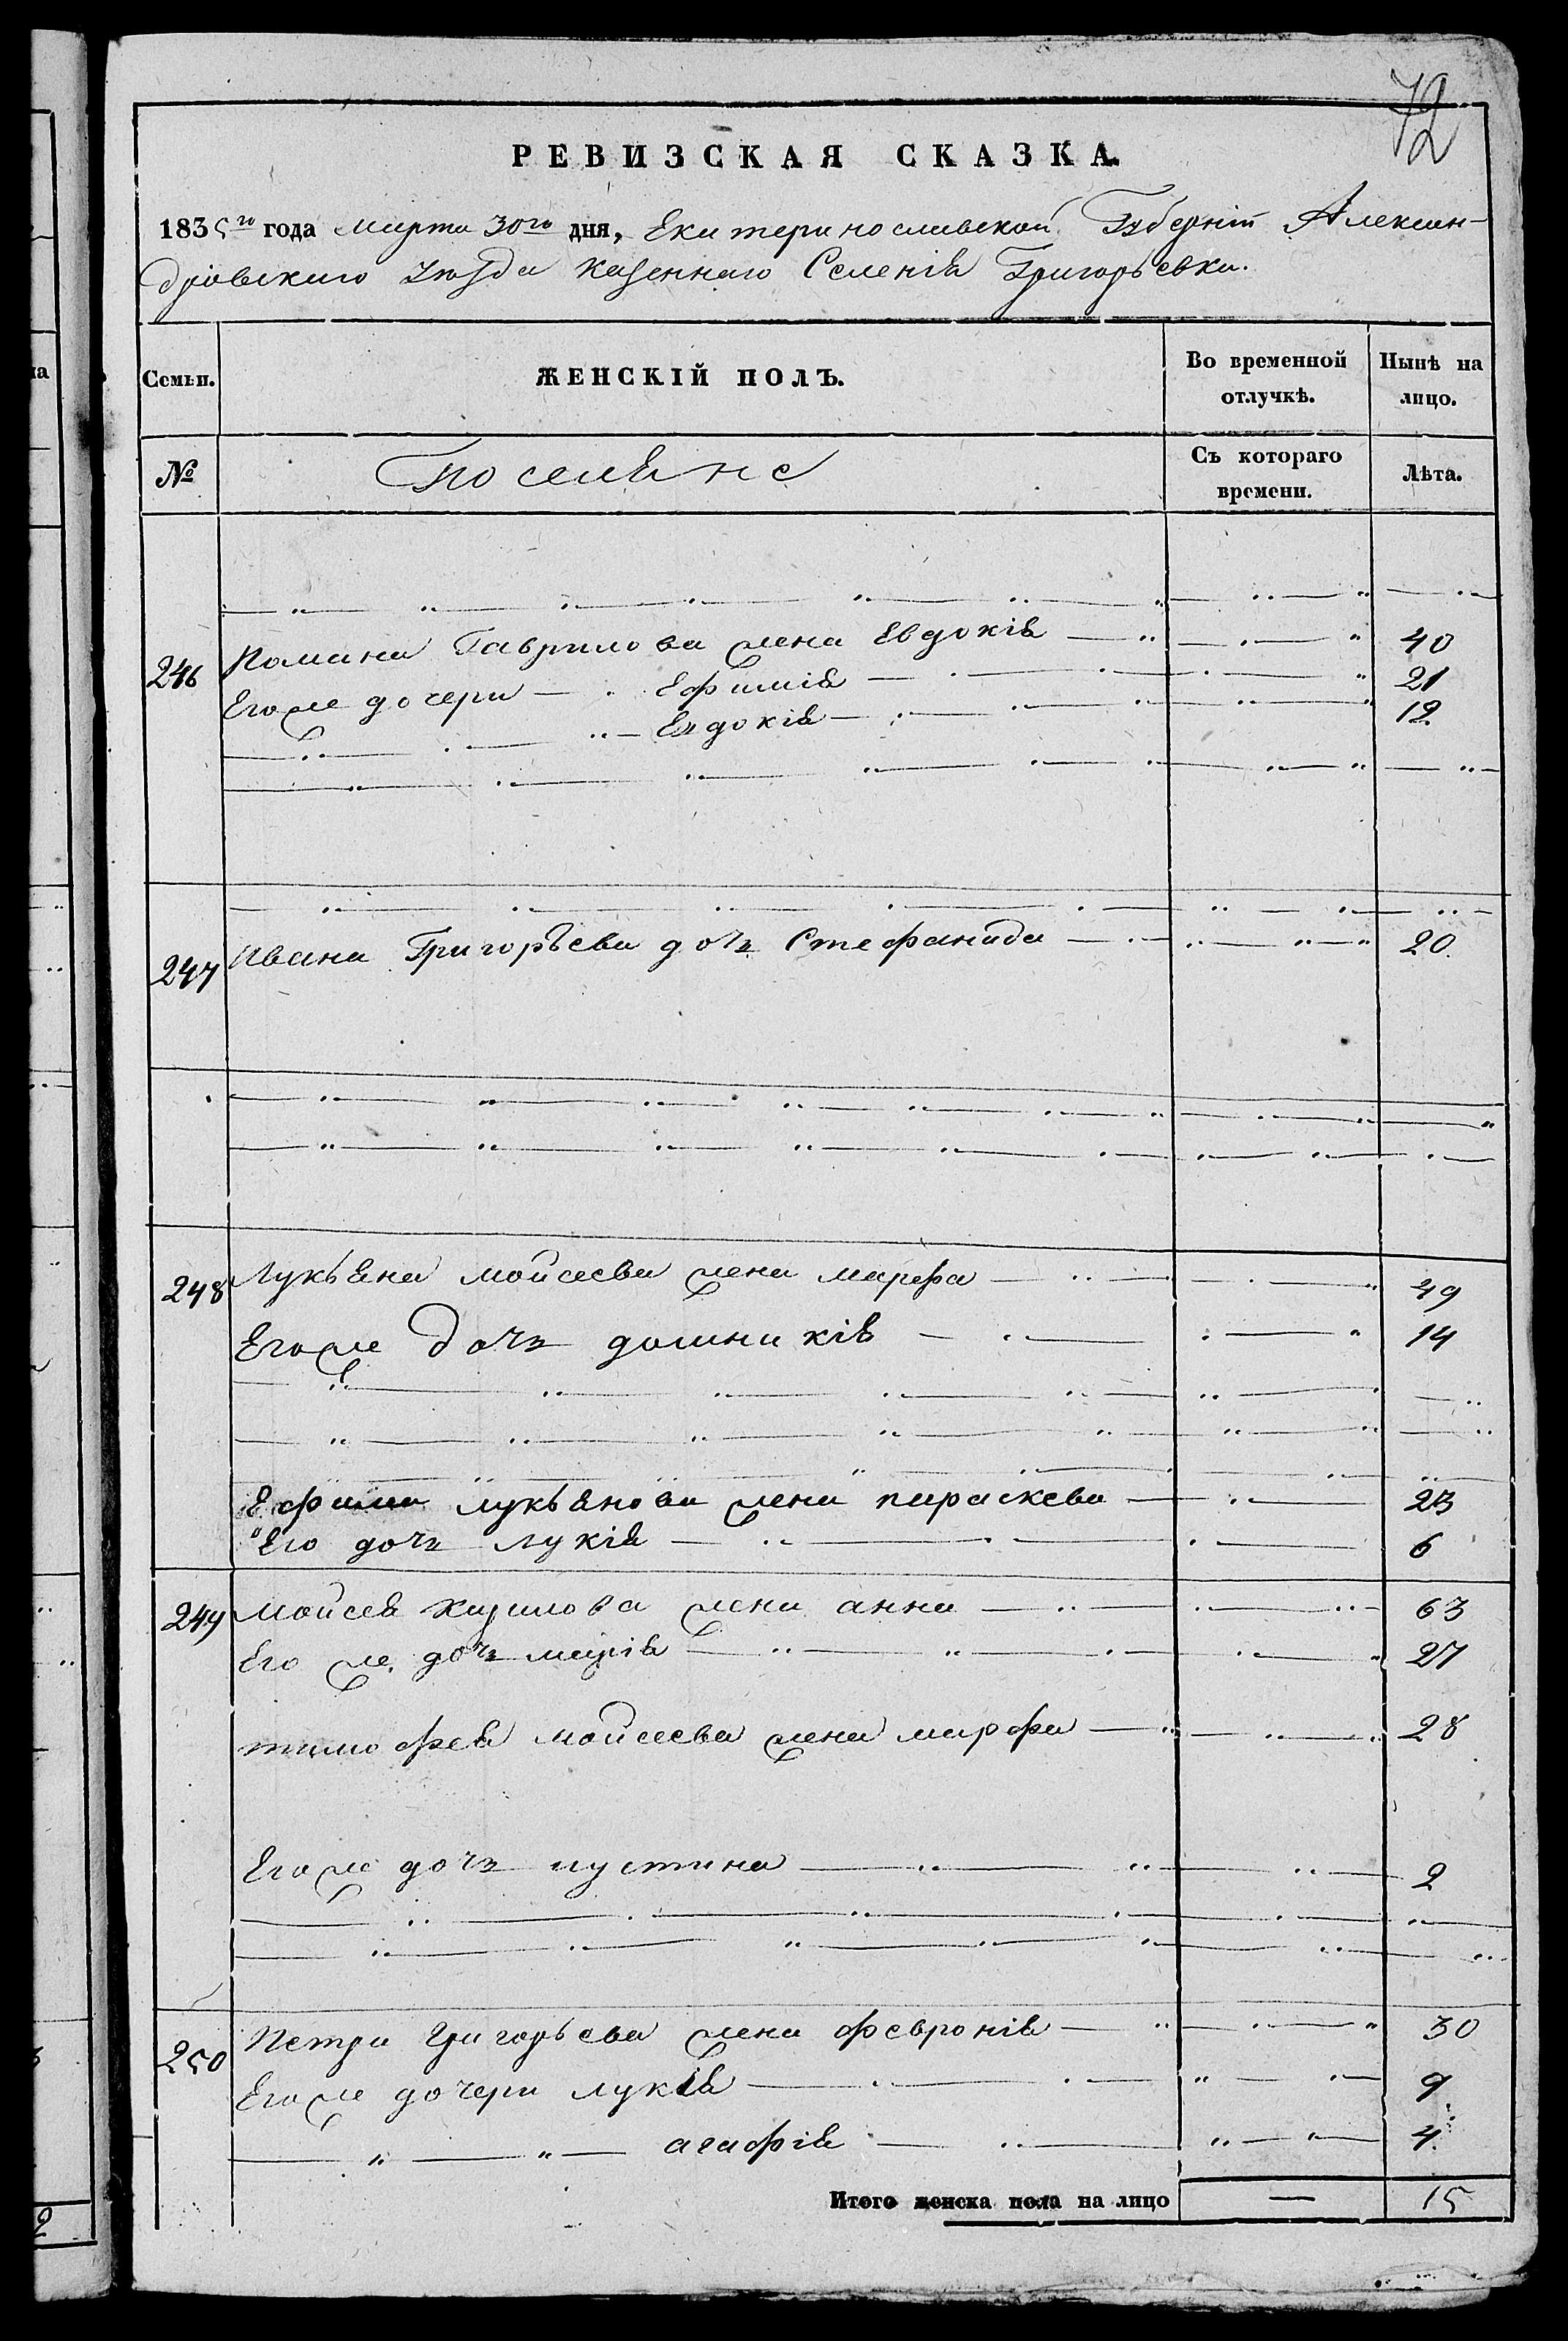 72
РЕВИЗСКАЯ СКАЗКА.
1835го года Марта 30го дня, Екатеринославской Губерніи Алексан-
дровскаго Уѣзда Казеннаго Селенія Григорьевки.
Семьи. ЖЕНСКІЙ ПОЛЪ. Во временной отлучкѣ. Нынѣ на лицо.
№ Поселяне Съ котораго времени. Лѣта.
246 Романа Гаврилова жена Евдокія 40
Егоже дочери Ефимія 21
Евдокія 12
247 Ивана Григорьева дочъ Стефанида 20
248 Лукьяна Мойсеева жена Марфа 49
Егоже дочъ Домникія 14
Ефима Лукьянова жена Параскева 23
Его дочъ Лукія 6
249 Мойсея Кирилова жена Анна 63
Его же дочъ Марія 27
Тимофея Мойсеева жена Марфа 28
Егоже дочъ Иустина 2
250 Петра Григорьева жена Февронія 30
Егоже дочери Лукія 9
Агафія 4
Итого женска пола на лицо — 15